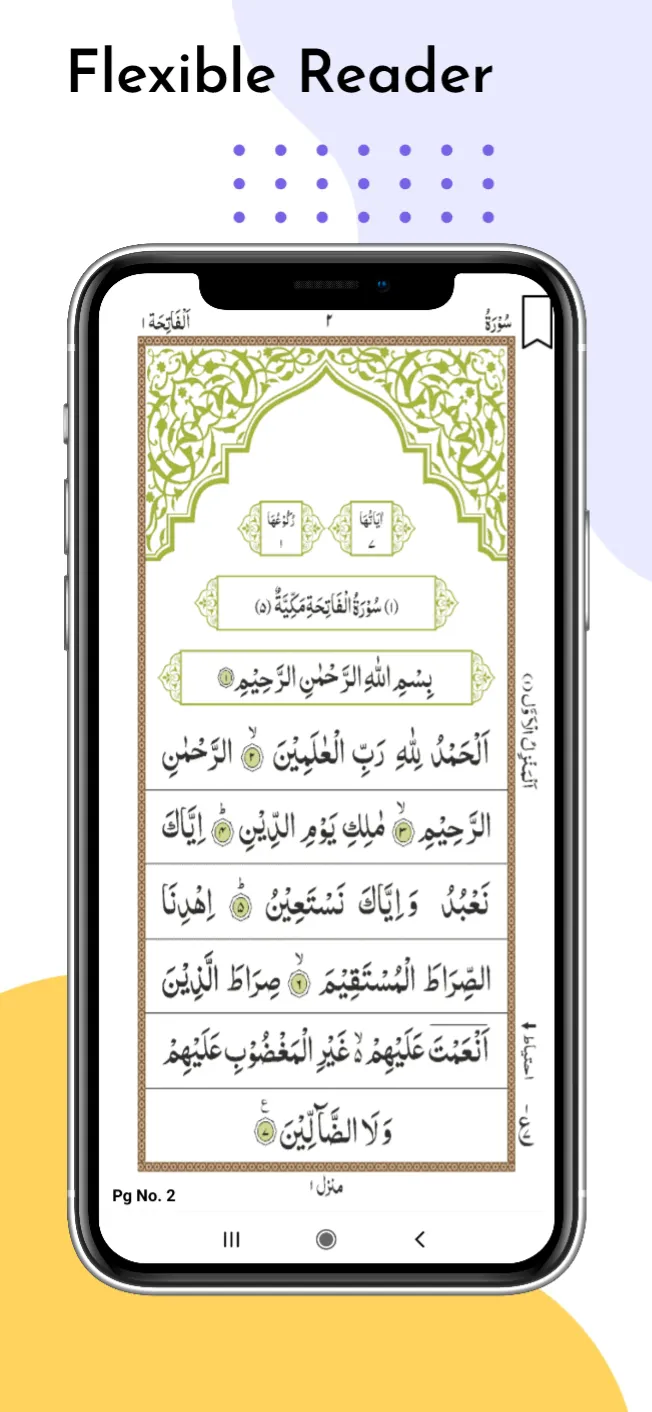 Flexible Reader
سُوْرَةُ ٢ اَلْفَاتِحَة ١
اٰيَاتُهَا ٧
رُكُوْعُهَا ١
(١) سُوْرَةُ الْفَاتِحَةِ مَكِّيَّةٌ (٥)
بِسْمِ اللّٰهِ الرَّحْمٰنِ الرَّحِيْمِ ١
اَلْحَمْدُ لِلّٰهِ رَبِّ الْعٰلَمِيْنَ ۙ ٢ الرَّحْمٰنِ
الرَّحِيْمِ ۙ ٣ مٰلِكِ يَوْمِ الدِّيْنِ ؕ ۴ اِيَّاكَ
نَعْبُدُ وَاِيَّاكَ نَسْتَعِيْنُ ؕ ۵ اِهْدِنَا
الصِّرَاطَ الْمُسْتَقِيْمَ ۙ ۶ صِرَاطَ الَّذِيْنَ
اَنْعَمْتَ عَلَيْهِمْ ۙ۬ غَيْرِ الْمَغْضُوْبِ عَلَيْهِمْ
وَلَا الضَّآلِّيْنَ ٧ ع
اَلْمَنْزِلُ الْاَوَّلُ (١)
احتياط
منزل ١
Pg No. 2